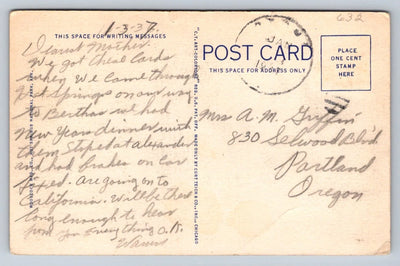 1-3-37
632
THIS SPACE FOR WRITING MESSAGES
POST CARD
THIS SPACE FOR ADDRESS ONLY
PLACE
ONE CENT
STAMP
HERE
JAN
Dearest Mother.
We got these Cards
when we came through
Hot Springs on our way
to Berthas we had
New Years dinner with
them Stoped at alexander
and had brakes on car
fixed. Are going on to
California. Will be there
long enough to hear
from you Everything O.K.
Mrs A. M. Griffin
830 Selwood Blvd
Portland
Oregon